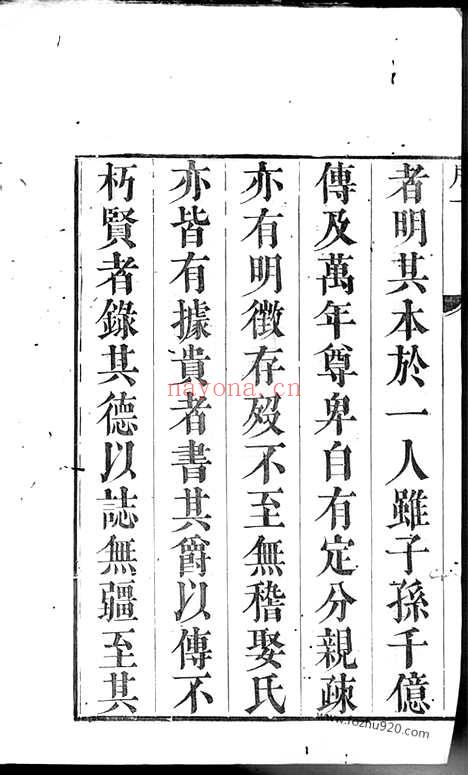 者明其本於一人雖子孫千億
傳及萬年尊卑自有定分親疎
亦有明徵存歿不至無稽娶氏
亦皆有據貴者書其爵以傳不
朽賢者錄其德以誌無疆至其
nayona.cn
www.fozhu920.com